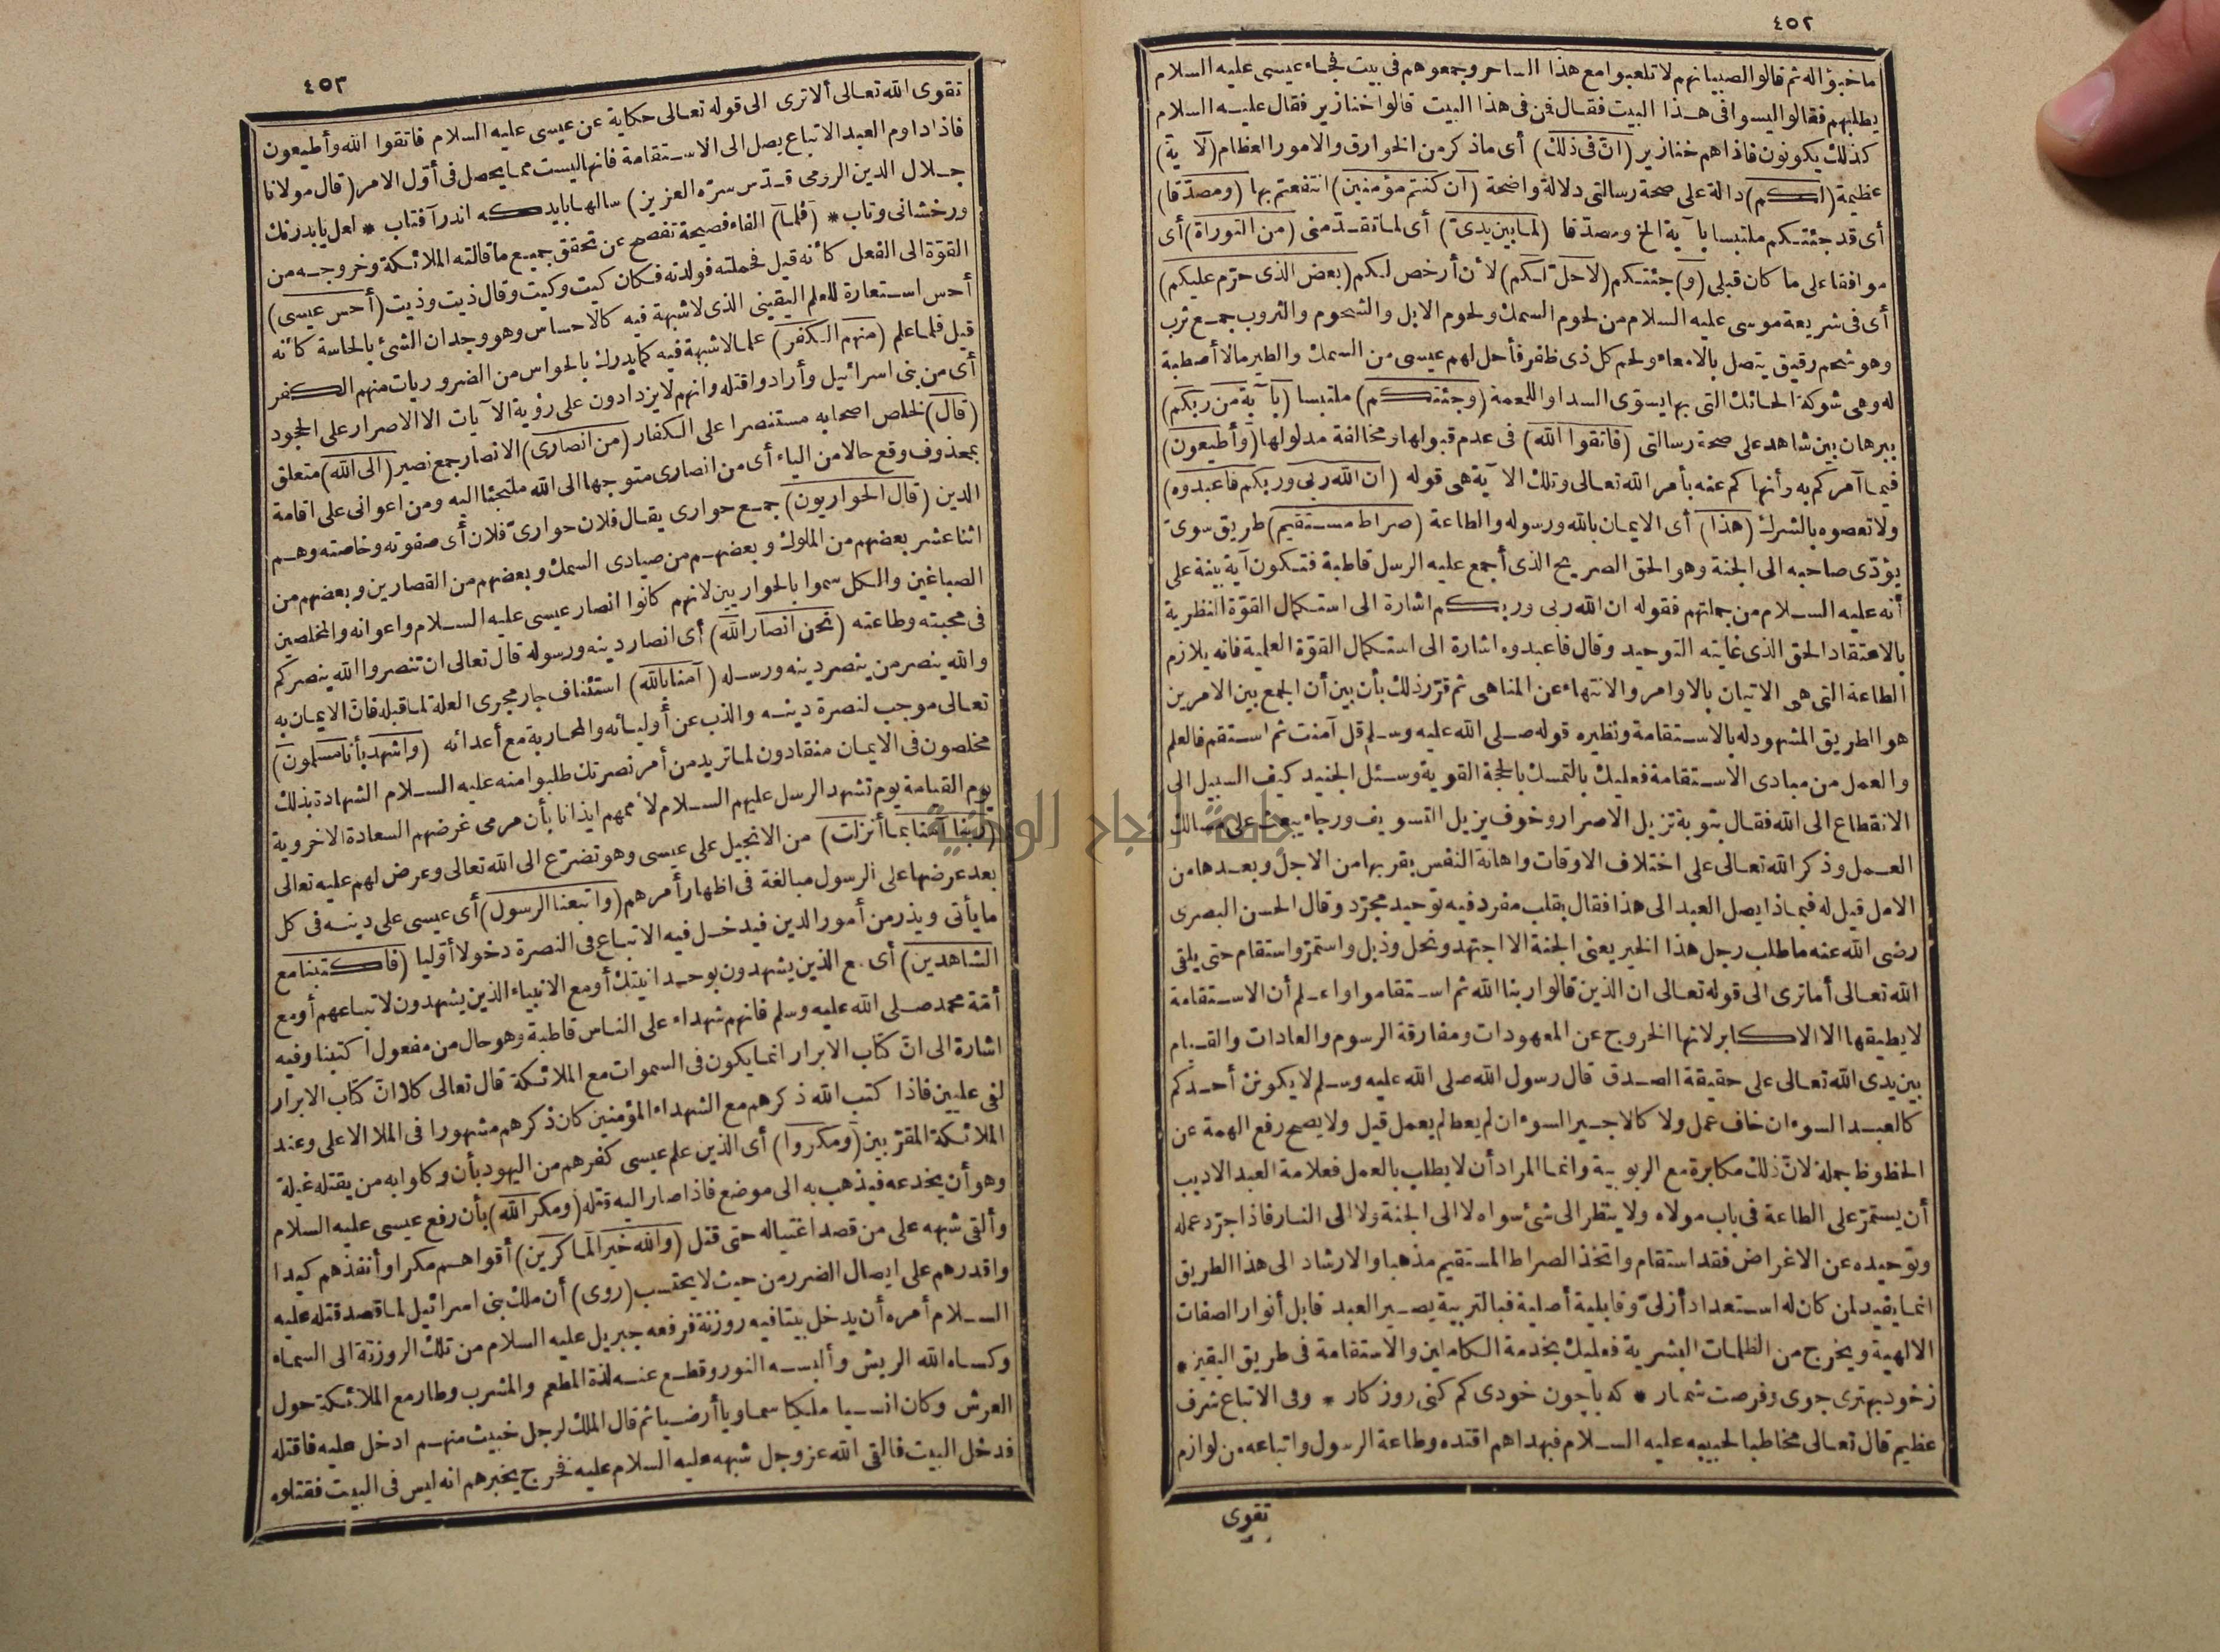 ٤٥٢
ما خبؤا له ثم قالوا لصبيانهم لا تلعبوا مع هذا الساحر وجمعوهم فى بيت فجاء عيسى عليه السلام
يطلبهم فقالوا ليسوا فى هذا البيت فقال فمن فى هذا البيت قالوا خنازير فقال عليه السلام
كذلك يكونون فاذا هم خنازير (ان فى ذلك) أى ما ذكر من الخوارق والامور العظام (لآية)
عظيمة (لكم) دالة على صحة رسالتى دلالة واضحة (ان كنتم مؤمنين) انتفعتم بها (ومصدّقا)
أى قد جئتكم ملتبسا بآية الخ ومصدّقا (لما بين يدىّ) أى لما تقدّمنى (من التوراة) أى
موافقا على ما كان قبلى (و) جئتكم (لاحلّ لكم) لأن أرخص لكم (بعض الذى حرّم عليكم)
أى فى شريعة موسى عليه السلام من لحوم السمك ولحوم الابل والشحوم والثروب جمع ثرب
وهو شحم رقيق يتصل بالامعاء ولحم كل ذى ظفر فأحل لهم عيسى من السمك والطير مالا أصطبة
له وهى شوكة الحائك التى بها يسوّى السدا واللحمة (وجئتكم) ملتبسا (بآية من ربكم)
ببرهان بين شاهد على صحة رسالتى (فاتقوا الله) فى عدم قبولها ومخالفة مدلولها (وأطيعون)
فيما آمركم به وأنهاكم عنه بأمر الله تعالى وتلك الآية هى قوله (ان الله ربى وربكم فاعبدوه)
ولا تعصوه بالشرك (هذا) أى الايمان بالله ورسوله والطاعة (صراط مستقيم) طريق سوىّ
يؤدّى صاحبه الى الجنة وهو الحق الصريح الذى أجمع عليه الرسل قاطبة فتكون آية بينة على
أنه عليه السلام من جملتهم فقوله ان الله ربى وربكم اشارة الى استكمال القوّة النظرية
بالاعتقاد الحق الذى غايته التوحيد وقال فاعبدوه اشارة الى استكمال القوّة العلمية فانه يلازم
الطاعة التى هى الاتيان بالاوامر والانتهاء عن المناهى ثم قرّر ذلك بأن بين أن الجمع بين الامرين
هو الطريق المشهود له بالاستقامة ونظيره قوله صلى الله عليه وسلم قل آمنت ثم استقم فالعلم
والعمل من مبادى الاستقامة فعليك بالتمسك بالحجة القوية وسئل الجنيد كيف السبيل الى
الانقطاع الى الله فقال بتوبة تزيل الاصرار وخوف يزيل التسويف ورجاء يبعث على مسالك
العمل وذكر الله تعالى على اختلاف الاوقات واهانة النفس بقربها من الاجل وبعدها من
الامل قيل له فبماذا يصل العبد الى هذا فقال بقلب مفرد فيه توحيد مجرّد وقال الحسن البصرى
رضى الله عنه ما طلب رجل هذا الخير يعنى الجنة الا اجتهد ونحل وذبل واستمرّ واستقام حتى يلقى
الله تعالى أما ترى الى قوله تعالى ان الذين قالوا ربنا الله ثم استقاموا واعلم أن الاستقامة
لا يطيقها الا الاكابر لانها الخروج عن المعهودات ومفارقة الرسوم والعادات والقيام
بين يدى الله تعالى على حقيقة الصدق قال رسول الله صلى الله عليه وسلم لا يكونن أحدكم
كالعبد السوء ان خاف عمل ولا كالاجير السوء ان لم يعط لم يعمل قيل ولا يصح رفع الهمة عن
الحظوظ جملة لانّ ذلك مكابرة مع الربوبية وانما المراد أن لا يطلب بالعمل فعلامة العبد الاديب
أن يستمرّ على الطاعة فى باب مولاه ولا ينظر الى شئ سواه لا الى الجنة ولا الى النار فاذا جرّد عمله
وتوحيده عن الاغراض فقد استقام واتخذ الصراط المستقيم مذهبا والارشاد الى هذا الطريق
انما يفيد لمن كان له استعداد أزلىّ وقابلية أصلية فبالتربية يصير العبد قابل أنوار الصفات
الالهية ويخرج من الظلمات البشرية فعليك بخدمة الكاملين والاستقامة فى طريق اليقين *
زخود بهترى جوى وفرصت شمار * كه باچون خودى كم كنى روزكار * وفى الاتباع شرف
عظيم قال تعالى مخاطبا لحبيبه عليه السلام فبهداهم اقتده وطاعة الرسول واتباعه من لوازم
تقوى
٤٥٣
تقوى الله تعالى ألا ترى الى قوله تعالى حكاية عن عيسى عليه السلام فاتقوا الله وأطيعون
فاذا داوم العبد الاتباع يصل الى الاستقامة فانها ليست مما يحصل فى أوّل الامر (قال مولانا
جلال الدين الرومى قدّس سرّه العزيز) سالها بايد كه اندر آفتاب * لعل يابد رنك
ورخشانى وتاب * (فلما) الفاء فصيحة تفصح عن تحقق جميع ما قالته الملائكة وخروجه من
القوّة الى الفعل كأنه قيل فحملته فولدته فكان كيت وكيت وقال ذيت وذيت (أحس عيسى)
أحس استعارة للعلم اليقينى الذى لا شبهة فيه كالاحساس وهو وجدان الشئ بالحاسة كأنه
قيل فلما علم (منهم الكفر) علما لا شبهة فيه كما يدرك بالحواس من الضروريات منهم الكفر
أى من بنى اسرائيل وأرادوا قتله وانهم لا يزدادون على رؤية الآيات الا الاصرار على الجحود
(قال) لخلص اصحابه مستنصرا على الكفار (من انصارى) الانصار جمع نصير (الى الله) متعلق
بمحذوف وقع حالا من الياء أى من انصارى متوجها الى الله ملتجئا اليه ومن اعوانى على اقامة
الدين (قال الحواريون) جمع حوارى يقال فلان حوارىّ فلان أى صفوته وخاصته وهم
اثنا عشر بعضهم من الملوك وبعضهم من صيادى السمك وبعضهم من القصارين وبعضهم من
الصباغين والكل سموا بالحواريين لانهم كانوا انصار عيسى عليه السلام واعوانه والمخلصين
فى محبته وطاعته (نحن انصار الله) أى انصار دينه ورسوله قال تعالى ان تنصروا الله ينصركم
والله ينصر من ينصر دينه ورسله (آمنا بالله) استئناف جار مجرى العلة لما قبله فانّ الايمان به
تعالى موجب لنصرة دينه والذب عن أوليائه والمحاربة مع أعدائه (واشهد بأنا مسلمون)
مخلصون فى الايمان منقادون لما تريد من أمر نصرتك طلبوا منه عليه السلام الشهادة بذلك
يوم القيامة يوم تشهد الرسل عليهم السلام لأممهم ايذانا بأن مرمى غرضهم السعادة الاخروية
(ربنا آمنا بما أنزلت) من الانجيل على عيسى وهو تضرّع الى الله تعالى وعرض لهم عليه تعالى
بعد عرضها على الرسول مبالغة فى اظهار أمرهم (واتبعنا الرسول) أى عيسى على دينه فى كل
ما يأتى ويذر من أمور الدين فيدخل فيه الاتباع فى النصرة دخولا أوّليا (فاكتبنا مع
الشاهدين) أى مع الذين يشهدون بوحدانيتك أو مع الانبياء الذين يشهدون لاتباعهم أو مع
أمّة محمد صلى الله عليه وسلم فانهم شهداء على الناس قاطبة وهو حال من مفعول اكتبنا وفيه
اشارة الى انّ كتاب الابرار انما يكون فى السموات مع الملائكة قال تعالى كلا انّ كتاب الابرار
لفى عليين فاذا كتب الله ذكرهم مع الشهداء المؤمنين كان ذكرهم مشهورا فى الملا الاعلى وعند
الملائكة المقرّبين (ومكروا) أى الذين علم عيسى كفرهم من اليهود بأن وكلوا به من يقتله غيلة
وهو أن يخدعه فيذهب به الى موضع فاذا صار اليه قتله (ومكر الله) بأن رفع عيسى عليه السلام
وألقى شبهه على من قصد اغتياله حتى قتل (والله خير الماكرين) أقواهم مكرا وأنفذهم كيدا
واقدرهم على ايصال الضرر من حيث لا يحتسب (روى) أن ملك بنى اسرائيل لما قصد قتله عليه
السلام أمره أن يدخل بيتا فيه روزنة فرفعه جبريل عليه السلام من تلك الروزنة الى السماء
وكساه الله الريش وألبسه النور وقطع عنه لذة المطعم والمشرب وطار مع الملائكة حول
العرش وكان انسيا ملكيا سماويا أرضيا ثم قال الملك لرجل خبيث منهم ادخل عليه فاقتله
فدخل البيت فالقى الله عز وجل شبهه عليه السلام عليه فخرج يخبرهم انه ليس فى البيت فقتلوه
جامعة النجاح الوطنية